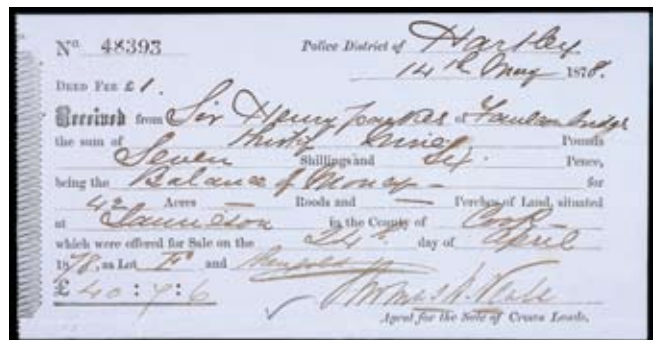 No. 48393 Police District of Hartley
14th May 1878.
DEED FEE £1.
Received from Sir Henry Parkes of Faulconbridge
the sum of thirty nine Pounds
Seven Shillings and Six Pence,
being the Balance of Money — for
42 Acres — Roods and — Perches of Land, situated
at in the County of Cook
which were offered for Sale on the 24th day of April
1878, as Lot F and
£ 40 : 7 : 6
Agent for the Sale of Crown Lands.